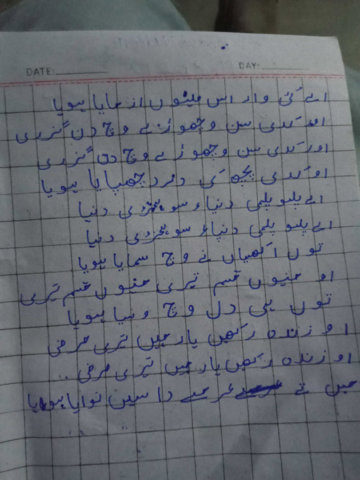 DATE: DAY:
اے کئی وار اس مینوں ازمایا ہویا
او کدی سن وچھوڑے وچ دن گزری
اور کدی سن وچھوڑے وچ دن گزری
او کدی پچھ کی درد چھپایا ہویا
اے بلیو پلی دنیا سو ہجر دی دنیا
اے بلیو پلی دنیا سو ہجر دی دنیا
توں اکھیاں نے وچ سمایا ہویا
او مینوں قسم تیری مینوں قسم تیری
توں ہی دل وچ وسیا ہویا
او زندہ رکھیں یار میں تیری مرضی
او زندہ رکھیں یار میں تیری مرضی
میں تے عرصے دا سین نوایا ہویا